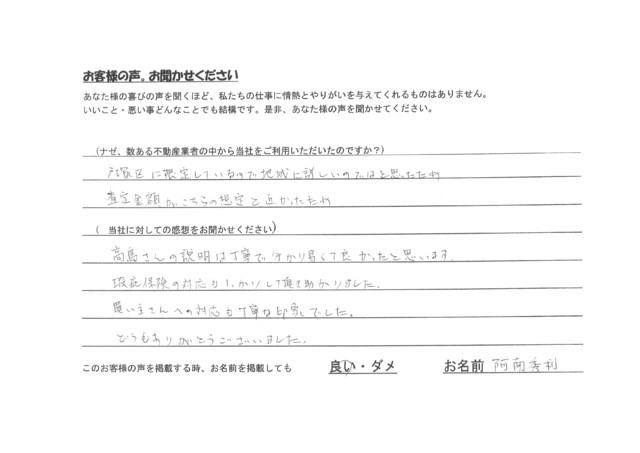 お客様の声。お聞かせください
あなた様の喜びの声を聞くほど、私たちの仕事に情熱とやりがいを与えてくれるものはありません。
いいこと・悪い事どんなことでも結構です。是非、あなた様の声を聞かせてください。
(ナゼ、数ある不動産業者の中から当社をご利用いただいたのですか?)
戸塚区に限定しているので地域に詳しいのではと思ったため
査定金額がこちらの想定と近かったため
( 当社に対しての感想をお聞かせください)
高島さんの説明は丁寧で分かり易くて良かったと思います。
瑕疵保険の対応もしっかりして頂き助かりました。
買い主さんへの対応も丁寧な印象でした。
どうもありがとうございました。
このお客様の声を掲載する時、お名前を掲載しても 良い・ダメ お名前 阿南秀利